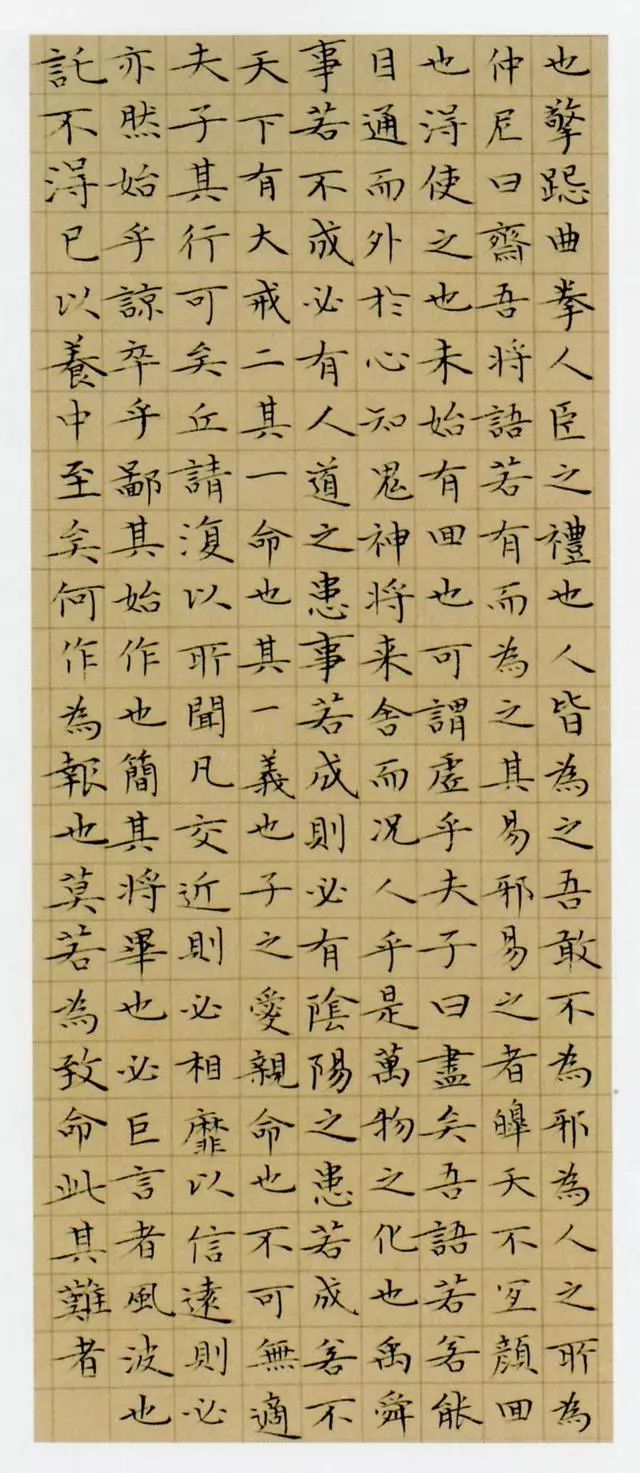 也擎跽曲拳人臣之禮也人皆為之吾敢不為邪為人之所為
仲尼曰齋吾将語若有而為之其易邪易之者皞天不宜顏回
也淂使之也未始有回也可謂虛乎夫子曰盡矣吾語若若能
目通而外於心知鬼神将来舍而况人乎是萬物之化也禹舜
事若不成必有人道之患事若成則必有陰陽之患若成若不
天下有大戒二其一命也其一義也子之愛親命也不可無適
夫子其行可矣丘請復以所聞凡交近則必相靡以信遠則必
亦然始乎諒卒乎鄙其始作也簡其将畢也必巨言者風波也
託不淂已以養中至矣何作為報也莫若為致命此其難者